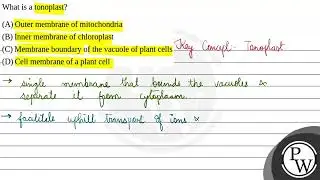 What is a tonoplast?
(A) Outer membrane of mitochondria
(B) Inner membrane of chloroplast
(C) Membrane boundary of the vacuole of plant cells
(D) Cell membrane of a plant cell
Key Concept - Tonoplast
→ single membrane that bounds the vacuoles &
separate it from cytoplasm.
→ facilitate uphill transport of ions &
PW